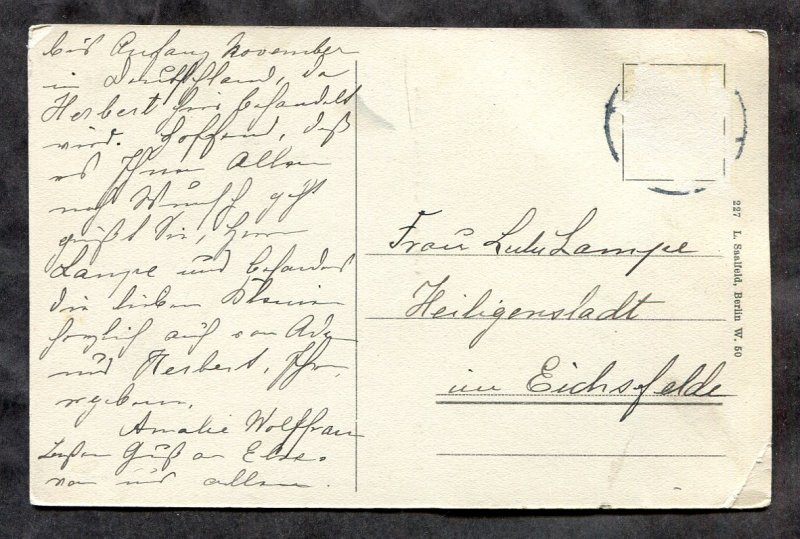 bis Anfang November
in Deutschland, da
Herbert hier behandelt
wird. Hoffend, daß
es Ihnen Allen
nach Wunsch geht
grüßt Sie, Herrn
Lampe und besonders
die lieben Kleinen
herzlich auch von
und Herbert, Ihre
ergebene
Amalie Wolffram
Gruß an Else
von uns allen.
Frau Lulu Lampe
Heiligenstadt
im Eichsfelde
227 L. Saalfeld, Berlin W. 50